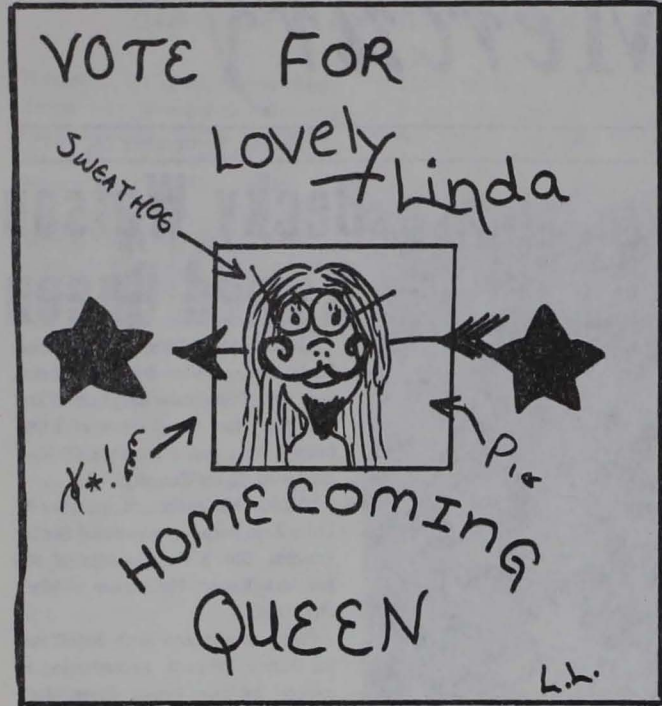 VOTE FOR
Lovely
Linda
SWEATHOG
*!
PIG
HOMECOMING
QUEEN
L.L.